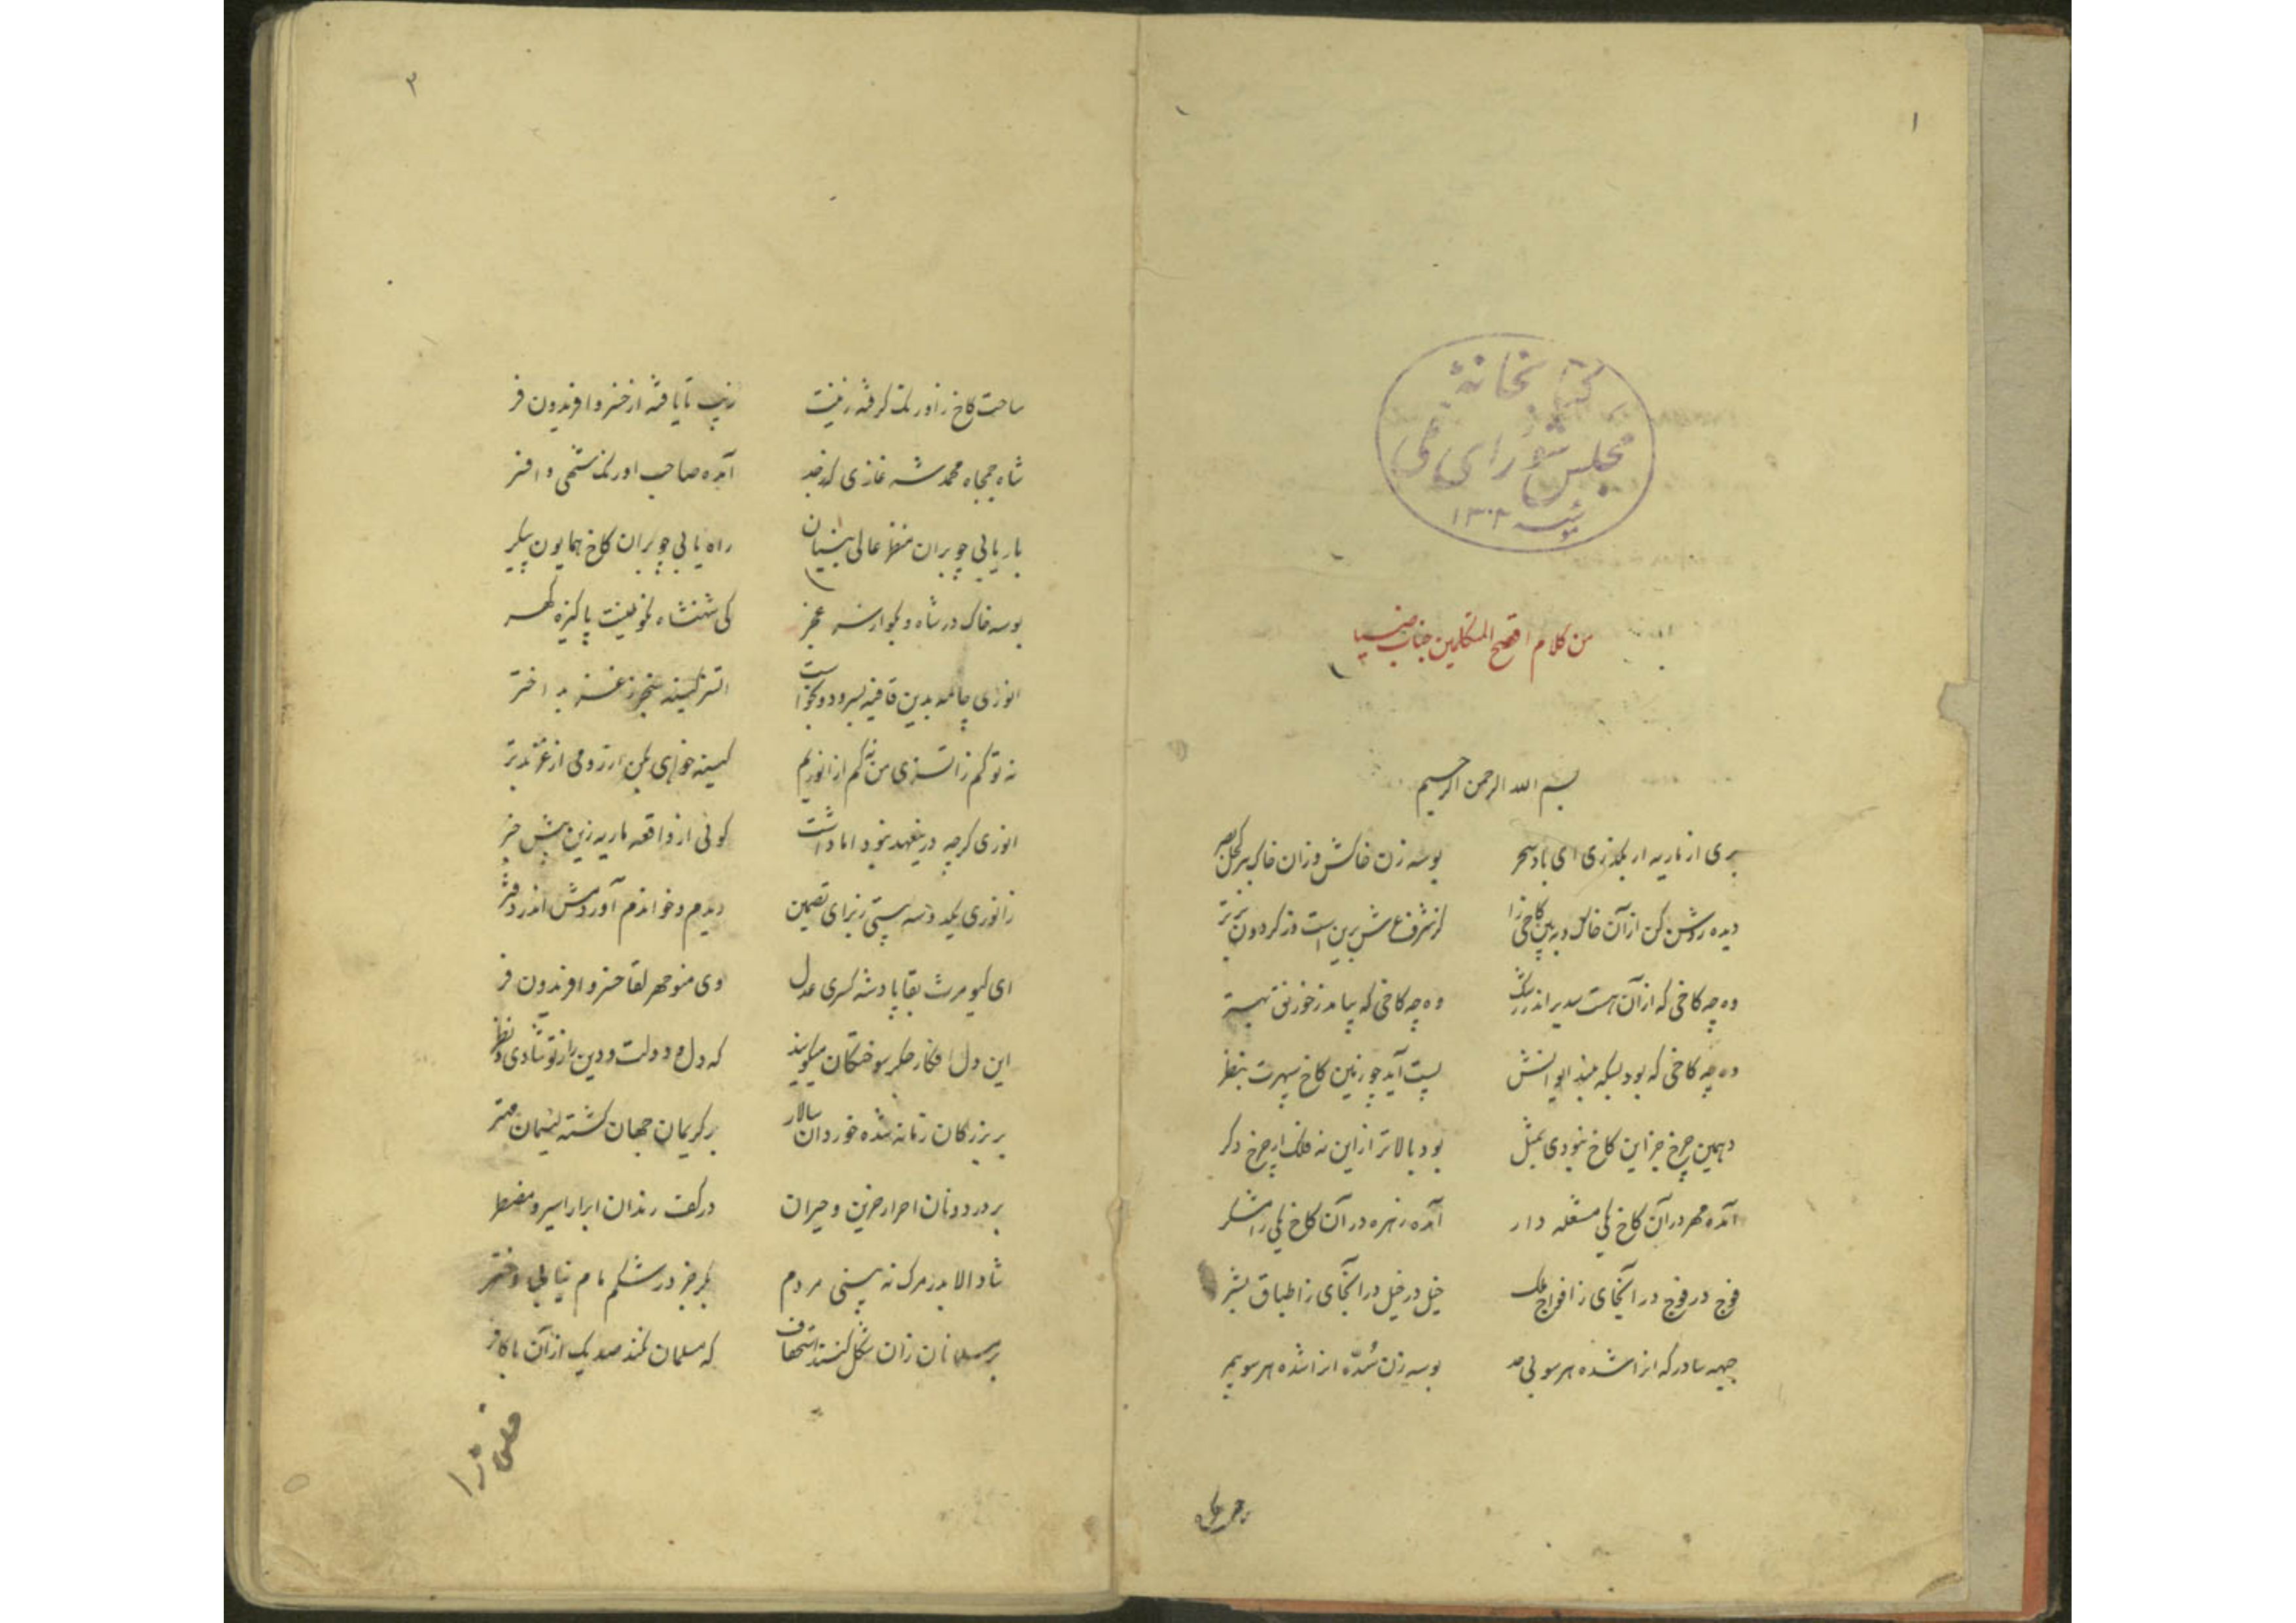 ۱
کتابخانهٔ
مجلس شورای ملی
۱۳۰۲
من کلام افصح المتکلمین جناب ضیا
بسم الله الرحمن الرحیم
بری از ماریه ار بگذری ای باد سحر بوسه زن خاکش وزان خاک ببر کحل بصر
دیده روشن کن از آن خاک و ببین کاخی را کز شرف عرش برین است وز گردون برتر
وه چه کاخی که از آن هست سدیر اندر رشک وه چه کاخی که بیامد ز خورنق بهتر
وه چه کاخی که بود بسکه بلند ایوانش پست آید چو زمین کاخ سپهرت بنظر
دهمین چرخ جز این کاخ نبودی بمثل بود بالاتر از این نه فلک ار چرخ دگر
آمده مهر در آن کاخ یکی مشعله دار آمده زهره در آن کاخ یکی رامشگر
فوج در فوج در آنجای ز افواج ملک خیل در خیل در آنجای ز اطباق بشر
جبهه سا در که از شده هر سو بی بوسه زن سُدّه شده هر سو
۲
ساحت کاخ ز اورنگ گرفته زینت زیب تا یافته از خسرو افریدون فر
شاه جمجاه محمد شه غازی که آمده صاحب اورنگ و افسر
باریابی چو بران منظر عالی بنیان راه یابی چو بران کاخ همایون پیکر
بوسه خاک در شاه و بگو از سر عجز کی شهنشاه نکو طینت پاکیزه گهر
انوری چامه بدین قافیه بسرود و بخواست اتسز کینه سنجر ز غز بد اختر
نه تو کم ز اتسزی من نه کم از انوریم کینه خواهی بکن از رومی از غز بدتر
انوری گرچه درینعهد نبود اما داشت گوئی از واقعه ماریه زین پیش خبر
ز انوری یکدوسه بیتی ز برای تضمین دیدم و خواندم آوردمش اندر دفتر
ای کیومرث بقا پادشه کسری عدل وی منوچهر لقا خسرو افریدون فر
این دل افکار جگر سوختگان میگویند که دل و دولت و دین را ز تو شادی و ظفر
بر بزرگان زمانه شده خوردان سالار بر کریمان جهان گشته لئیمان مهتر
بر در دونان احرار حزین و حیران در کف رندان ابرار اسیر و مضطر
شاد الا بدر مرگ نه بینی مردم بکر جز در شکم مام نیابی دختر
بر مسلمانان زان شکل کنند استخفاف که مسلمان نکند صد یک از آن با کافر